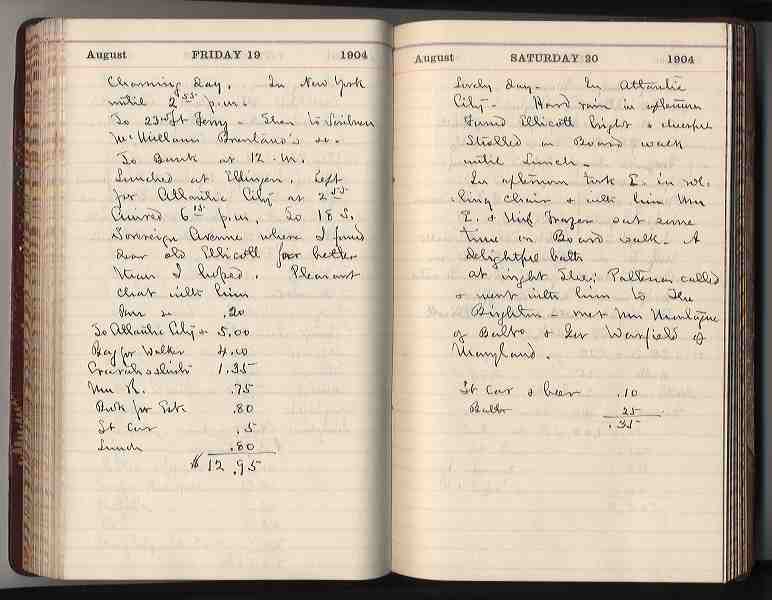 August FRIDAY 19 1904
Charming day. In New York
until 2 55 p.m.
To 23rd St Ferry - Then to
McMillans Brentano's
To Bank at 12 . m.
Lunched at Left
for Atlantic City at 2 55
Arrived 6 15 p.m. To 18 S.
Sovereign Avenue where I found
dear old Ellicott far better
than I hoped. Pleasant
chat with him
.20
To Atlantic City 5.00
Bag for Walker 4.00
1.35
.75
Book for .80
St Car .5
Lunch .80
$12.95
August SATURDAY 20 1904
Lovely day - In Atlantic
City - Hard rain in afternoon
Found Ellicott bright & cheerful
Strolled on Board walk
until Lunch -
In afternoon took E. in rol-
ling chair & with him Mrs
E. & Miss Frazer out some
time on Board walk - A
delightful bath
at night Patterson called
& went with him to The
Brighton - met Mrs
of Balto & Gov Warfield of
Maryland.
St Car & beer .10
25
.35